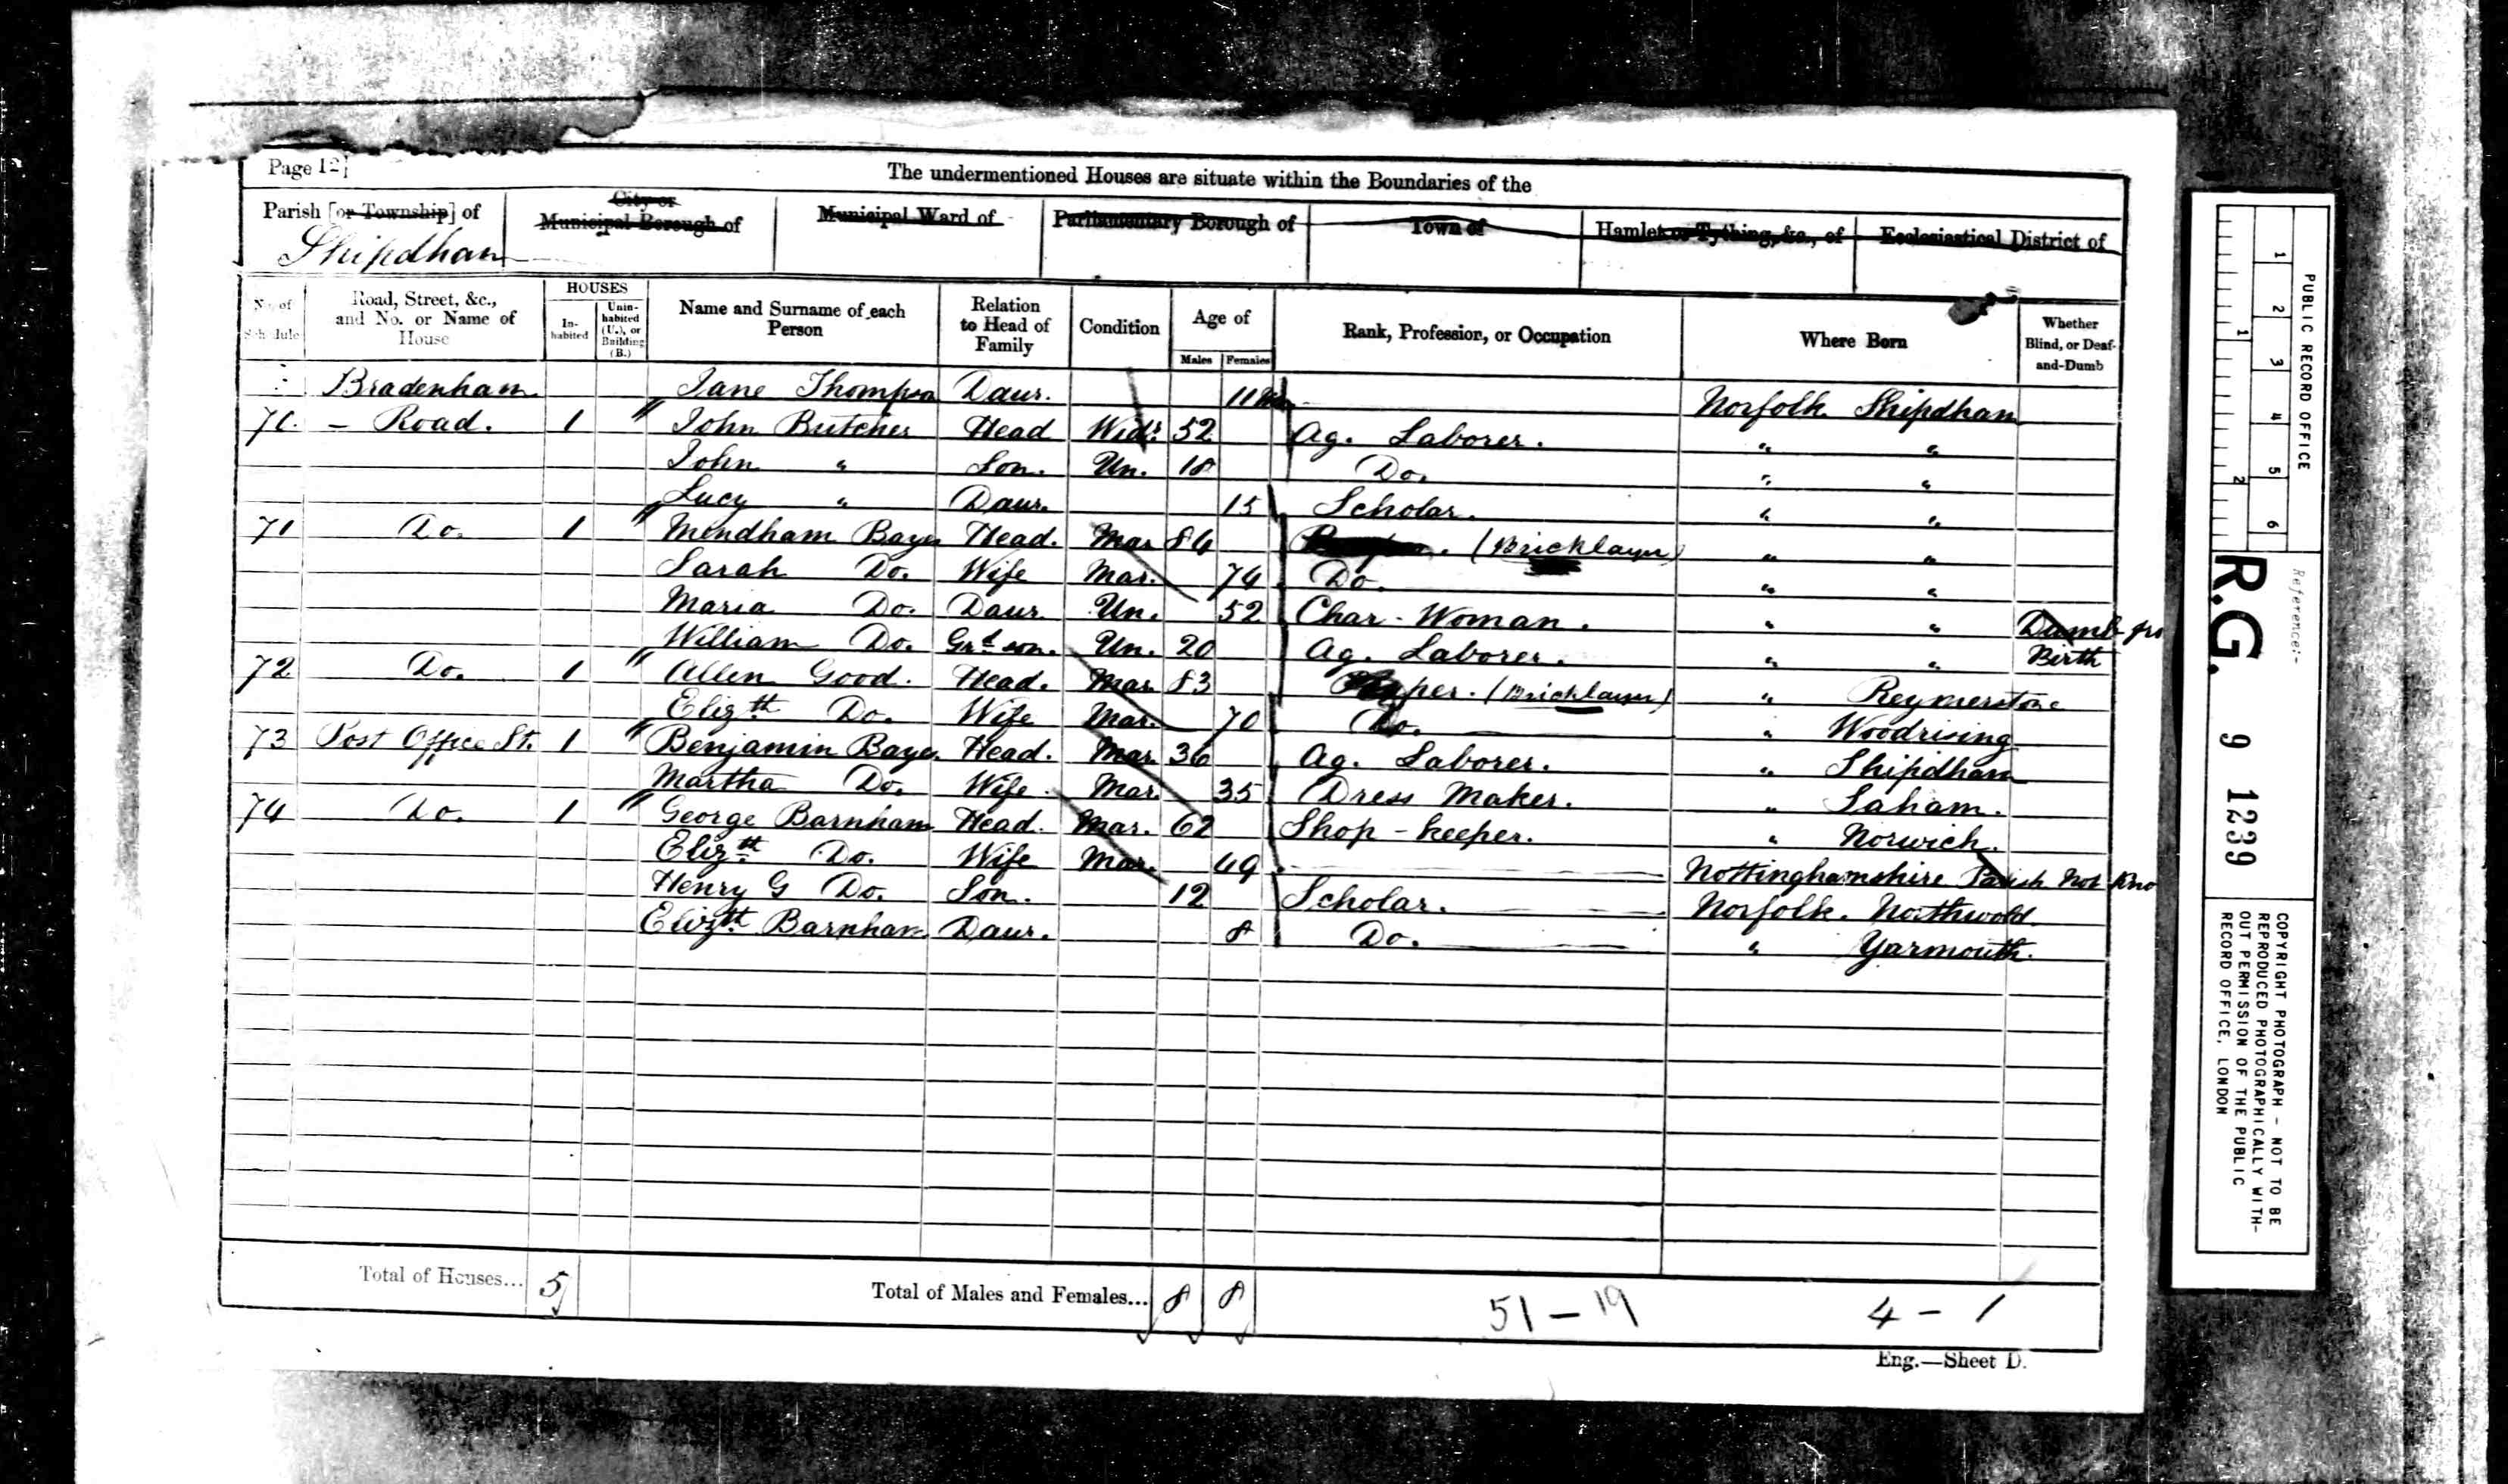 Page 12]
The undermentioned Houses are situate within the Boundaries of the
Parish [or Township] of
City or Municipal Borough of
Municipal Ward of
Parliamentary Borough of
Town of
Hamlet or Tything, &c., of
Ecclesiastical District of
Shipdham
No. of Schedule
Road, Street, &c., and No. or Name of House
HOUSES
In-habited
Unin-habited (U.), or Building (B.)
Name and Surname of each Person
Relation to Head of Family
Condition
Age of
Males
Females
Rank, Profession, or Occupation
Where Born
Whether Blind, or Deaf-and-Dumb
Bradenham Jane Thompson Daur. 11 Norfolk Shipdham
70. – Road. 1 John Butcher Head Widr. 52 Ag. Laborer. " "
John " Son. Un. 18 Do. " "
Lucy " Daur. 15 Scholar. " "
71 Do. 1 Mendham Bayes Head. Mar 84 (Bricklayer) " "
Sarah Do. Wife Mar. 74 Do. " "
Maria Do. Daur Un. 52 Char-Woman. " " Dumb fro
William Do. Grd son. Un. 20 Ag. Laborer. " " Birth
72 Do. 1 Allen Good. Head. Mar 83 (Bricklayer) " Reymerstone
Elizth Do. Wife Mar. 70 Do. " Woodrising
73 Post Office St. 1 Benjamin Bayes. Head. Mar. 36 Ag. Laborer. " Shipdham
Martha Do. Wife. Mar. 35 Dress Maker. " Saham.
74 Do. 1 George Barnham Head. Mar. 62 Shop-keeper. " Norwich.
Elizth Do. Wife Mar. 49 Nottinghamshire Parish Not Kno
Henry G Do. Son. 12 Scholar. Norfolk. Northwold
Elizth Barnham Daur. 8 Do. " Yarmouth.
Total of Houses... 5
Total of Males and Females... 8 8
51 – 19
4 – 1
Eng.—Sheet D.
PUBLIC RECORD OFFICE
1 2 3 4 5 6
1 2
Reference:-
R.G. 9 1239
COPYRIGHT PHOTOGRAPH - NOT TO BE
REPRODUCED PHOTOGRAPHICALLY WITH-
OUT PERMISSION OF THE PUBLIC
RECORD OFFICE, LONDON